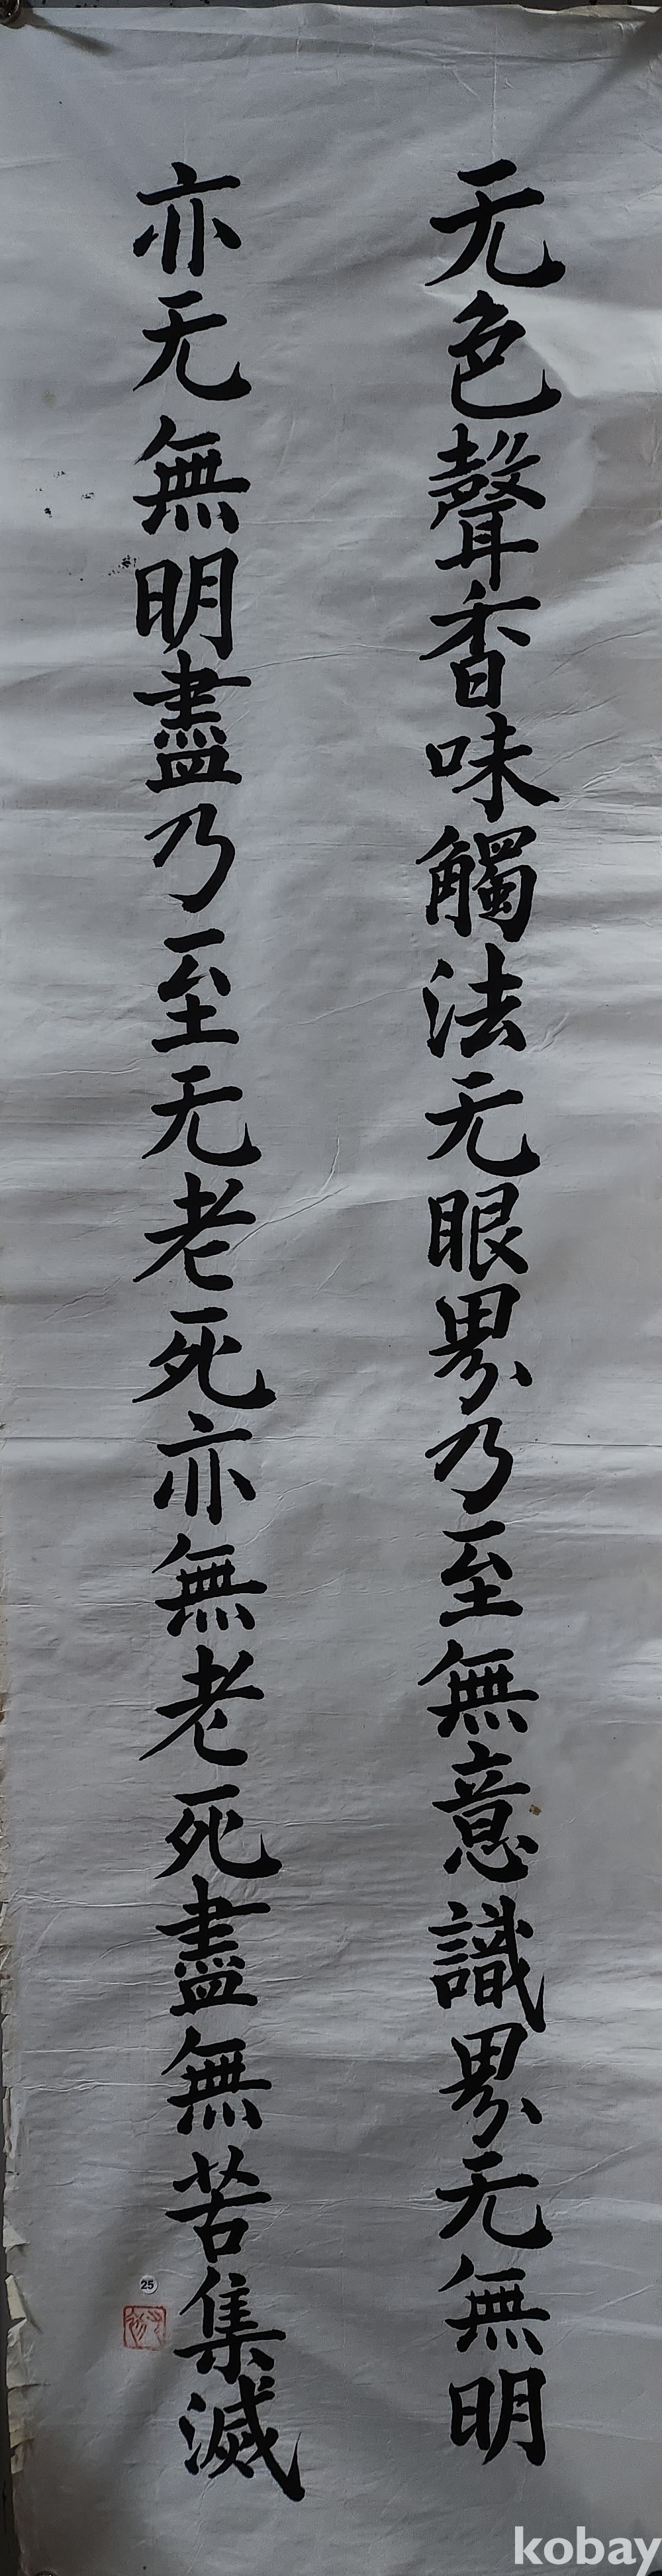 无色聲香味觸法无眼界乃至無意識界无無明
亦无無明盡乃至无老死亦無老死盡無苦集滅
25
kobay